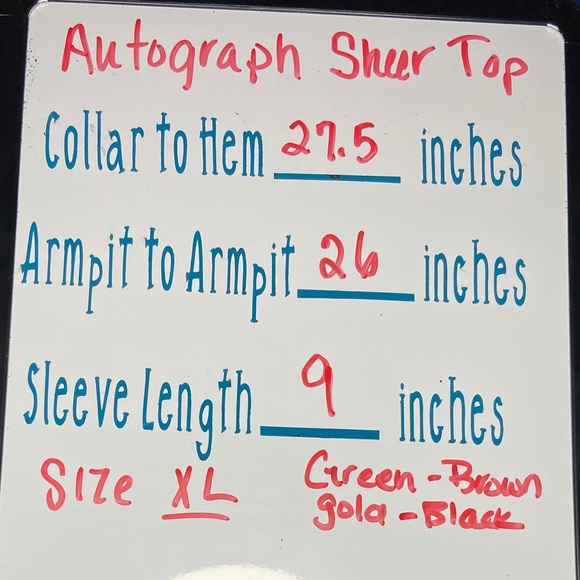 Autograph Sheer Top
Collar to Hem 27.5 inches
Armpit to Armpit 26 inches
Sleeve Length 9 inches
Size XL
Green - Brown
gold - Black